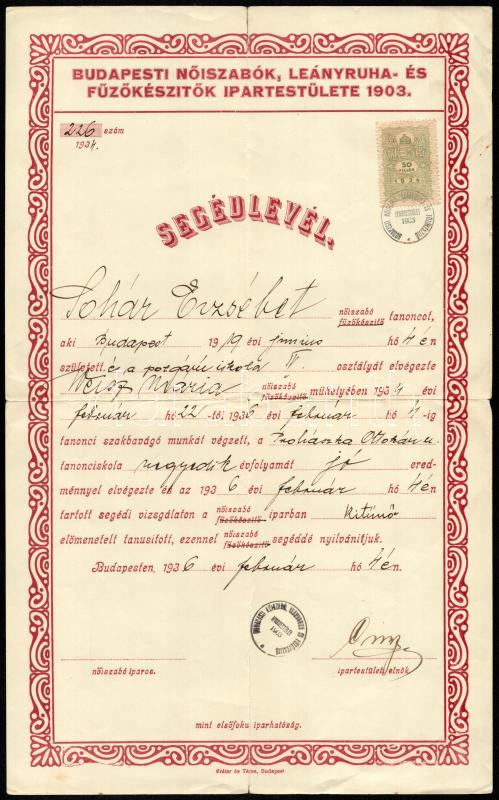 BUDAPESTI NŐISZABÓK, LEÁNYRUHA- ÉS
FŰZŐKÉSZITŐK IPARTESTÜLETE 1903.
226 szám
1934.
50
FILLÉR
1934
BUDAPEST
1903
SEGÉDLEVÉL.
Sohár Erzsébet nőiszabó fűzőkészitő tanoncot,
aki Budapest 1919 évi junius hó 4 én
született és a polgári iskola II. osztályát elvégezte
Weisz Mária nőiszabó fűzőkészitő műhelyében 1934 évi
február hó 22-től, 1936 évi február hó 4-ig
tanonci szakbavágó munkát végzett, a Prohászka Ottokár u.
tanonciskola negyedik évfolyamát jó ered-
ménnyel elvégezte és az 1936 évi február hó 4 én
tartott segédi vizsgálaton a nőiszabó fűzőkészitő iparban kitünő
előmenetelt tanusitott, ezennel nőiszabó fűzőkészitő segéddé nyilvánitjuk.
Budapesten, 1936 évi február hó 4 én.
1903
nőiszabó iparos.
ipartestületi elnök.
mint elsőfoku iparhatóság.
Fráter és Társa, Budapest